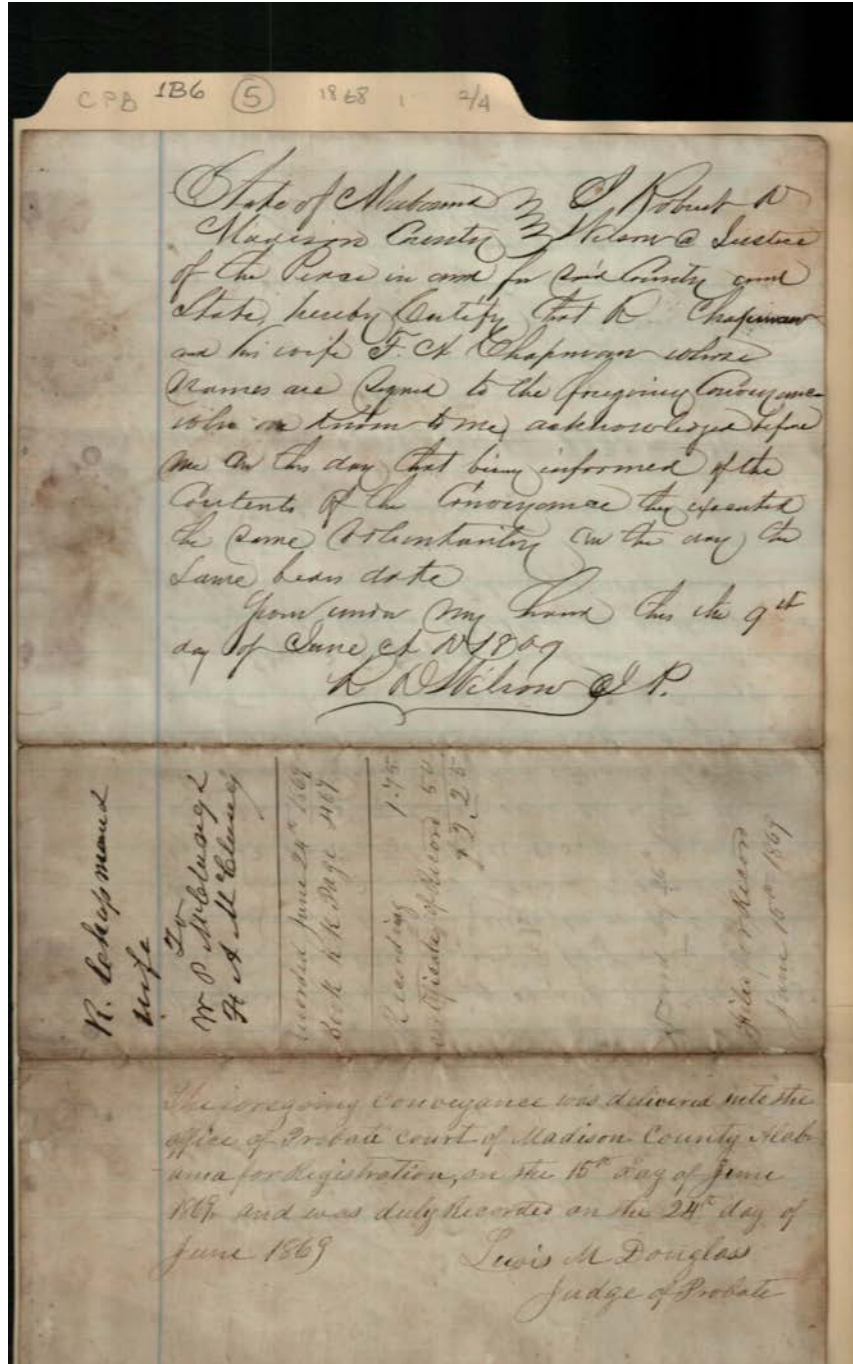 CPB 1B6 5 1868 1 2/4
State of Alabama } I Robert D
Madison County } Wilson a Justice
of the Peace in and for said County and
State, hereby Certify that R Chapman
and his wife F. A Chapman whose
names are signed to the foregoing Conveyance
who are known to me, acknowledged before
me on this day that being informed of the
Contents of the Conveyance they executed
the same voluntarily on the day the
same bears date
Given under my hand this the 9th
day of June A D 1869
R D Wilson J P.
R. Chapman &
wife
To
W P McClung &
H A McClung
Recorded June 24th 1869
Book K K Page 467
Recording 1.75
of Record 50
$2.25
Filed for Record
June 15th 1869
The foregoing Conveyance was delivered into the
office of Probate court of Madison County Alab-
ama for Registration, on the 15th Day of June
1869 and was duly Recorded on the 24th day of
June 1869
Lewis M Douglass
Judge of Probate